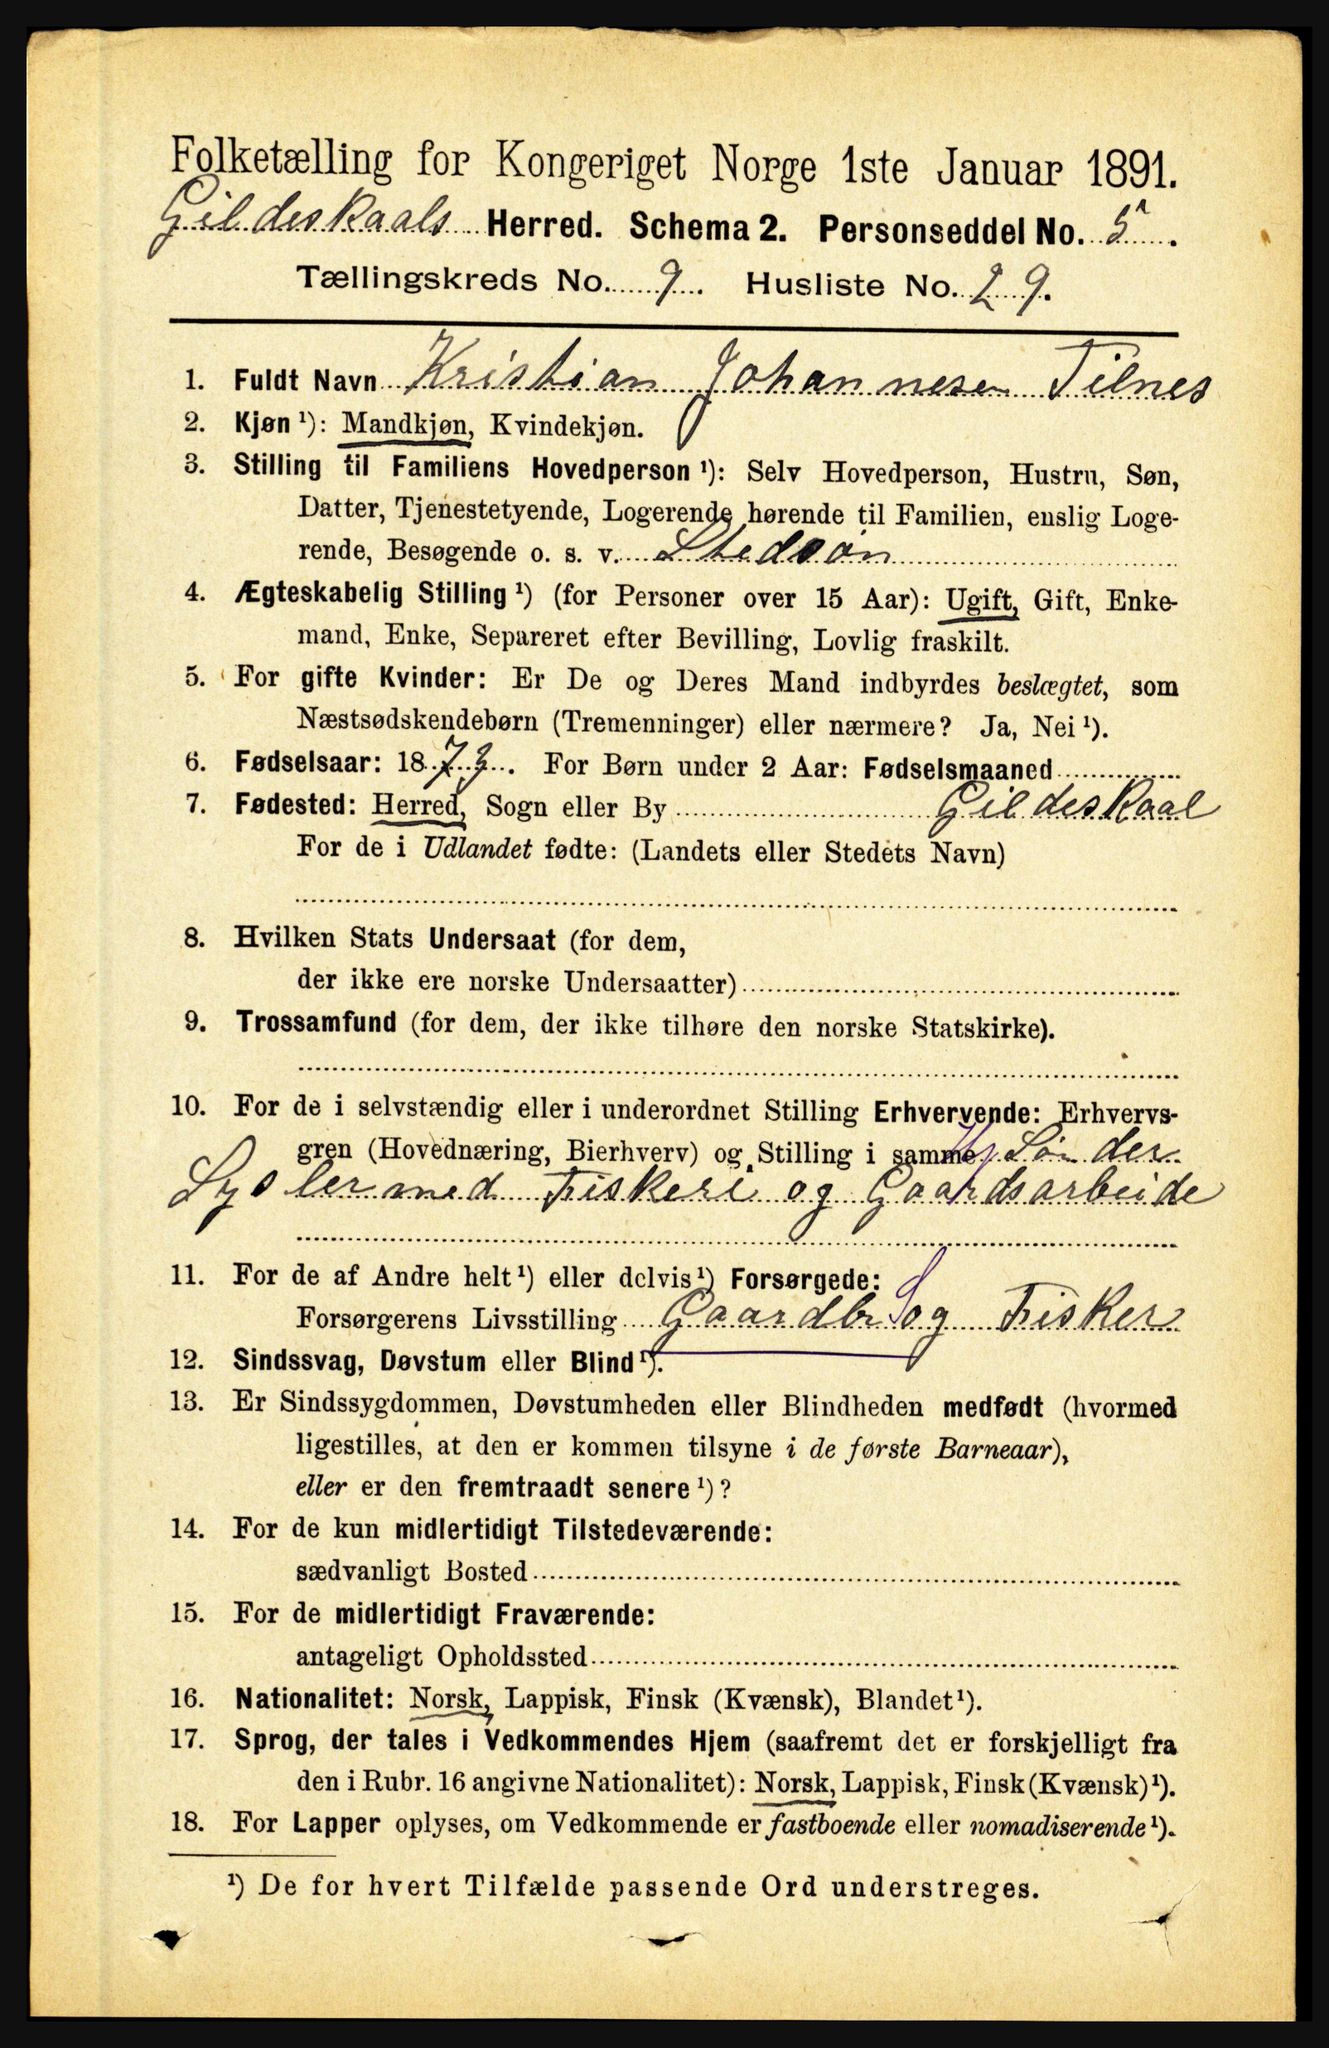 Folketælling for Kongeriget Norge 1ste Januar 1891.
Gildeskaals Herred. Schema 2. Personseddel No. 5.
Tællingskreds No. 9. Husliste No. 29.
1. Fuldt Navn Kristian Johannesen Tilnes
2. Kjøn ¹): Mandkjøn, Kvindekjøn.
3. Stilling til Familiens Hovedperson ¹): Selv Hovedperson, Hustru, Søn,
Datter, Tjenestetyende, Logerende hørende til Familien, enslig Loge-
rende, Besøgende o. s. v. Stedsøn
4. Ægteskabelig Stilling ¹) (for Personer over 15 Aar): Ugift, Gift, Enke-
mand, Enke, Separeret efter Bevilling, Lovlig fraskilt.
5. For gifte Kvinder: Er De og Deres Mand indbyrdes beslægtet, som
Næstsødskendebørn (Tremenninger) eller nærmere? Ja, Nei ¹).
6. Fødselsaar: 1873. For Børn under 2 Aar: Fødselsmaaned
7. Fødested: Herred, Sogn eller By Gildeskaal
For de i Udlandet fødte: (Landets eller Stedets Navn)
8. Hvilken Stats Undersaat (for dem,
der ikke ere norske Undersaatter)
9. Trossamfund (for dem, der ikke tilhøre den norske Statskirke).
10. For de i selvstændig eller i underordnet Stilling Erhvervende: Erhvervs-
gren (Hovednæring, Bierhverv) og Stilling i samme
Sysler med Fiskeri og Gaardsarbeide
11. For de af Andre helt ¹) eller delvis ¹) Forsørgede:
Forsørgerens Livsstilling Gaardbr og Fisker
12. Sindssvag, Døvstum eller Blind ¹).
13. Er Sindssygdommen, Døvstumheden eller Blindheden medfødt (hvormed
ligestilles, at den er kommen tilsyne i de første Barneaar),
eller er den fremtraadt senere ¹)?
14. For de kun midlertidigt Tilstedeværende:
sædvanligt Bosted
15. For de midlertidigt Fraværende:
antageligt Opholdssted
16. Nationalitet: Norsk, Lappisk, Finsk (Kvænsk), Blandet ¹).
17. Sprog, der tales i Vedkommendes Hjem (saafremt det er forskjelligt fra
den i Rubr. 16 angivne Nationalitet): Norsk, Lappisk, Finsk (Kvænsk) ¹).
18. For Lapper oplyses, om Vedkommende er fastboende eller nomadiserende ¹).
¹) De for hvert Tilfælde passende Ord understreges.